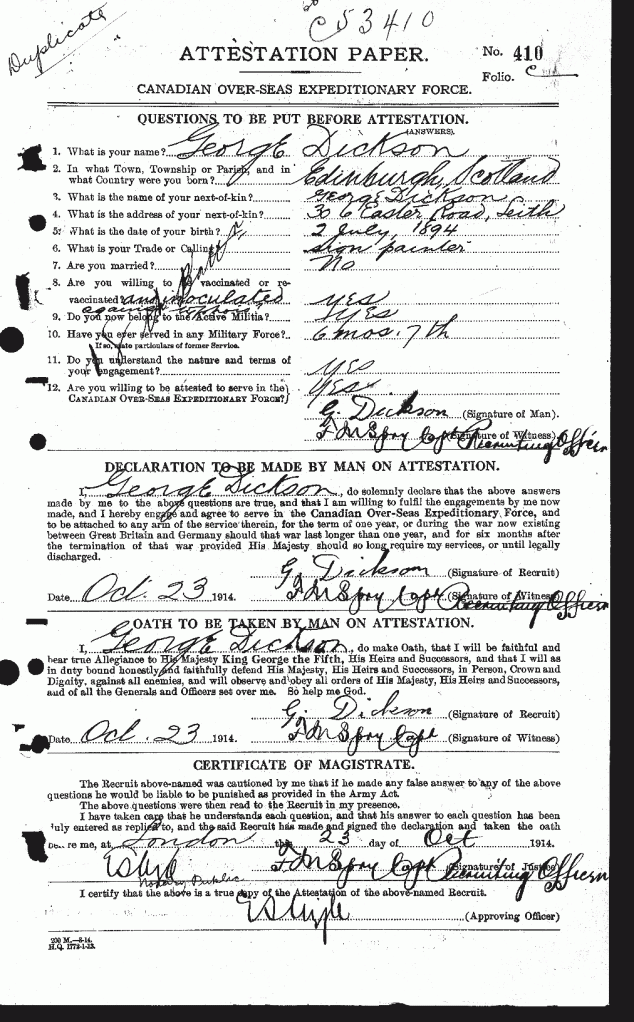 Duplicate
C 53410
ATTESTATION PAPER.
No. 410
Folio. C
CANADIAN OVER-SEAS EXPEDITIONARY FORCE.
QUESTIONS TO BE PUT BEFORE ATTESTATION.
(ANSWERS).
1. What is your name? George Dickson
2. In what Town, Township or Parish, and in
what Country were you born? Edinburgh, Scotland
3. What is the name of your next-of-kin? George Dickson
4. What is the address of your next-of-kin? 30 Easter Road, Leith
5. What is the date of your birth? 2 July, 1894
6. What is your Trade or Calling? sign painter
7. Are you married? No
8. Are you willing to be vaccinated or re-
vaccinated? and inoculated yes
against
9. Do you now belong to the Active Militia? yes
10. Have you ever served in any Military Force? 6 mos. 7th
If so, state particulars of former Service.
11. Do you understand the nature and terms of
your engagement? yes
12. Are you willing to be attested to serve in the
CANADIAN OVER-SEAS EXPEDITIONARY FORCE? yes
G. Dickson (Signature of Man).
Capt Recruiting Officer (Signature of Witness)
DECLARATION TO BE MADE BY MAN ON ATTESTATION.
I, George Dickson, do solemnly declare that the above answers
made by me to the above questions are true, and that I am willing to fulfil the engagements by me now
made, and I hereby engage and agree to serve in the Canadian Over-Seas Expeditionary Force, and
to be attached to any arm of the service therein, for the term of one year, or during the war now existing
between Great Britain and Germany should that war last longer than one year, and for six months after
the termination of that war provided His Majesty should so long require my services, or until legally
discharged.
G. Dickson (Signature of Recruit)
Date Oct. 23 1914. Capt Recruiting Officer (Signature of Witness)
OATH TO BE TAKEN BY MAN ON ATTESTATION.
I, George Dickson, do make Oath, that I will be faithful and
bear true Allegiance to His Majesty King George the Fifth, His Heirs and Successors, and that I will as
in duty bound honestly and faithfully defend His Majesty, His Heirs and Successors, in Person, Crown and
Dignity, against all enemies, and will observe and obey all orders of His Majesty, His Heirs and Successors,
and of all the Generals and Officers set over me. So help me God.
G. Dickson (Signature of Recruit)
Date Oct. 23 1914. Capt (Signature of Witness)
CERTIFICATE OF MAGISTRATE.
The Recruit above-named was cautioned by me that if he made any false answer to any of the above
questions he would be liable to be punished as provided in the Army Act.
The above questions were then read to the Recruit in my presence.
I have taken care that he understands each question, and that his answer to each question has been
duly entered as replied to, and the said Recruit has made and signed the declaration and taken the oath
before me, at London this 23 day of Oct 1914.
Capt Recruiting Officer (Signature of Justice)
Notary Public
I certify that the above is a true copy of the Attestation of the above-named Recruit.
(Approving Officer)
200 M.—8-14.
H.Q. 1772-1-13.